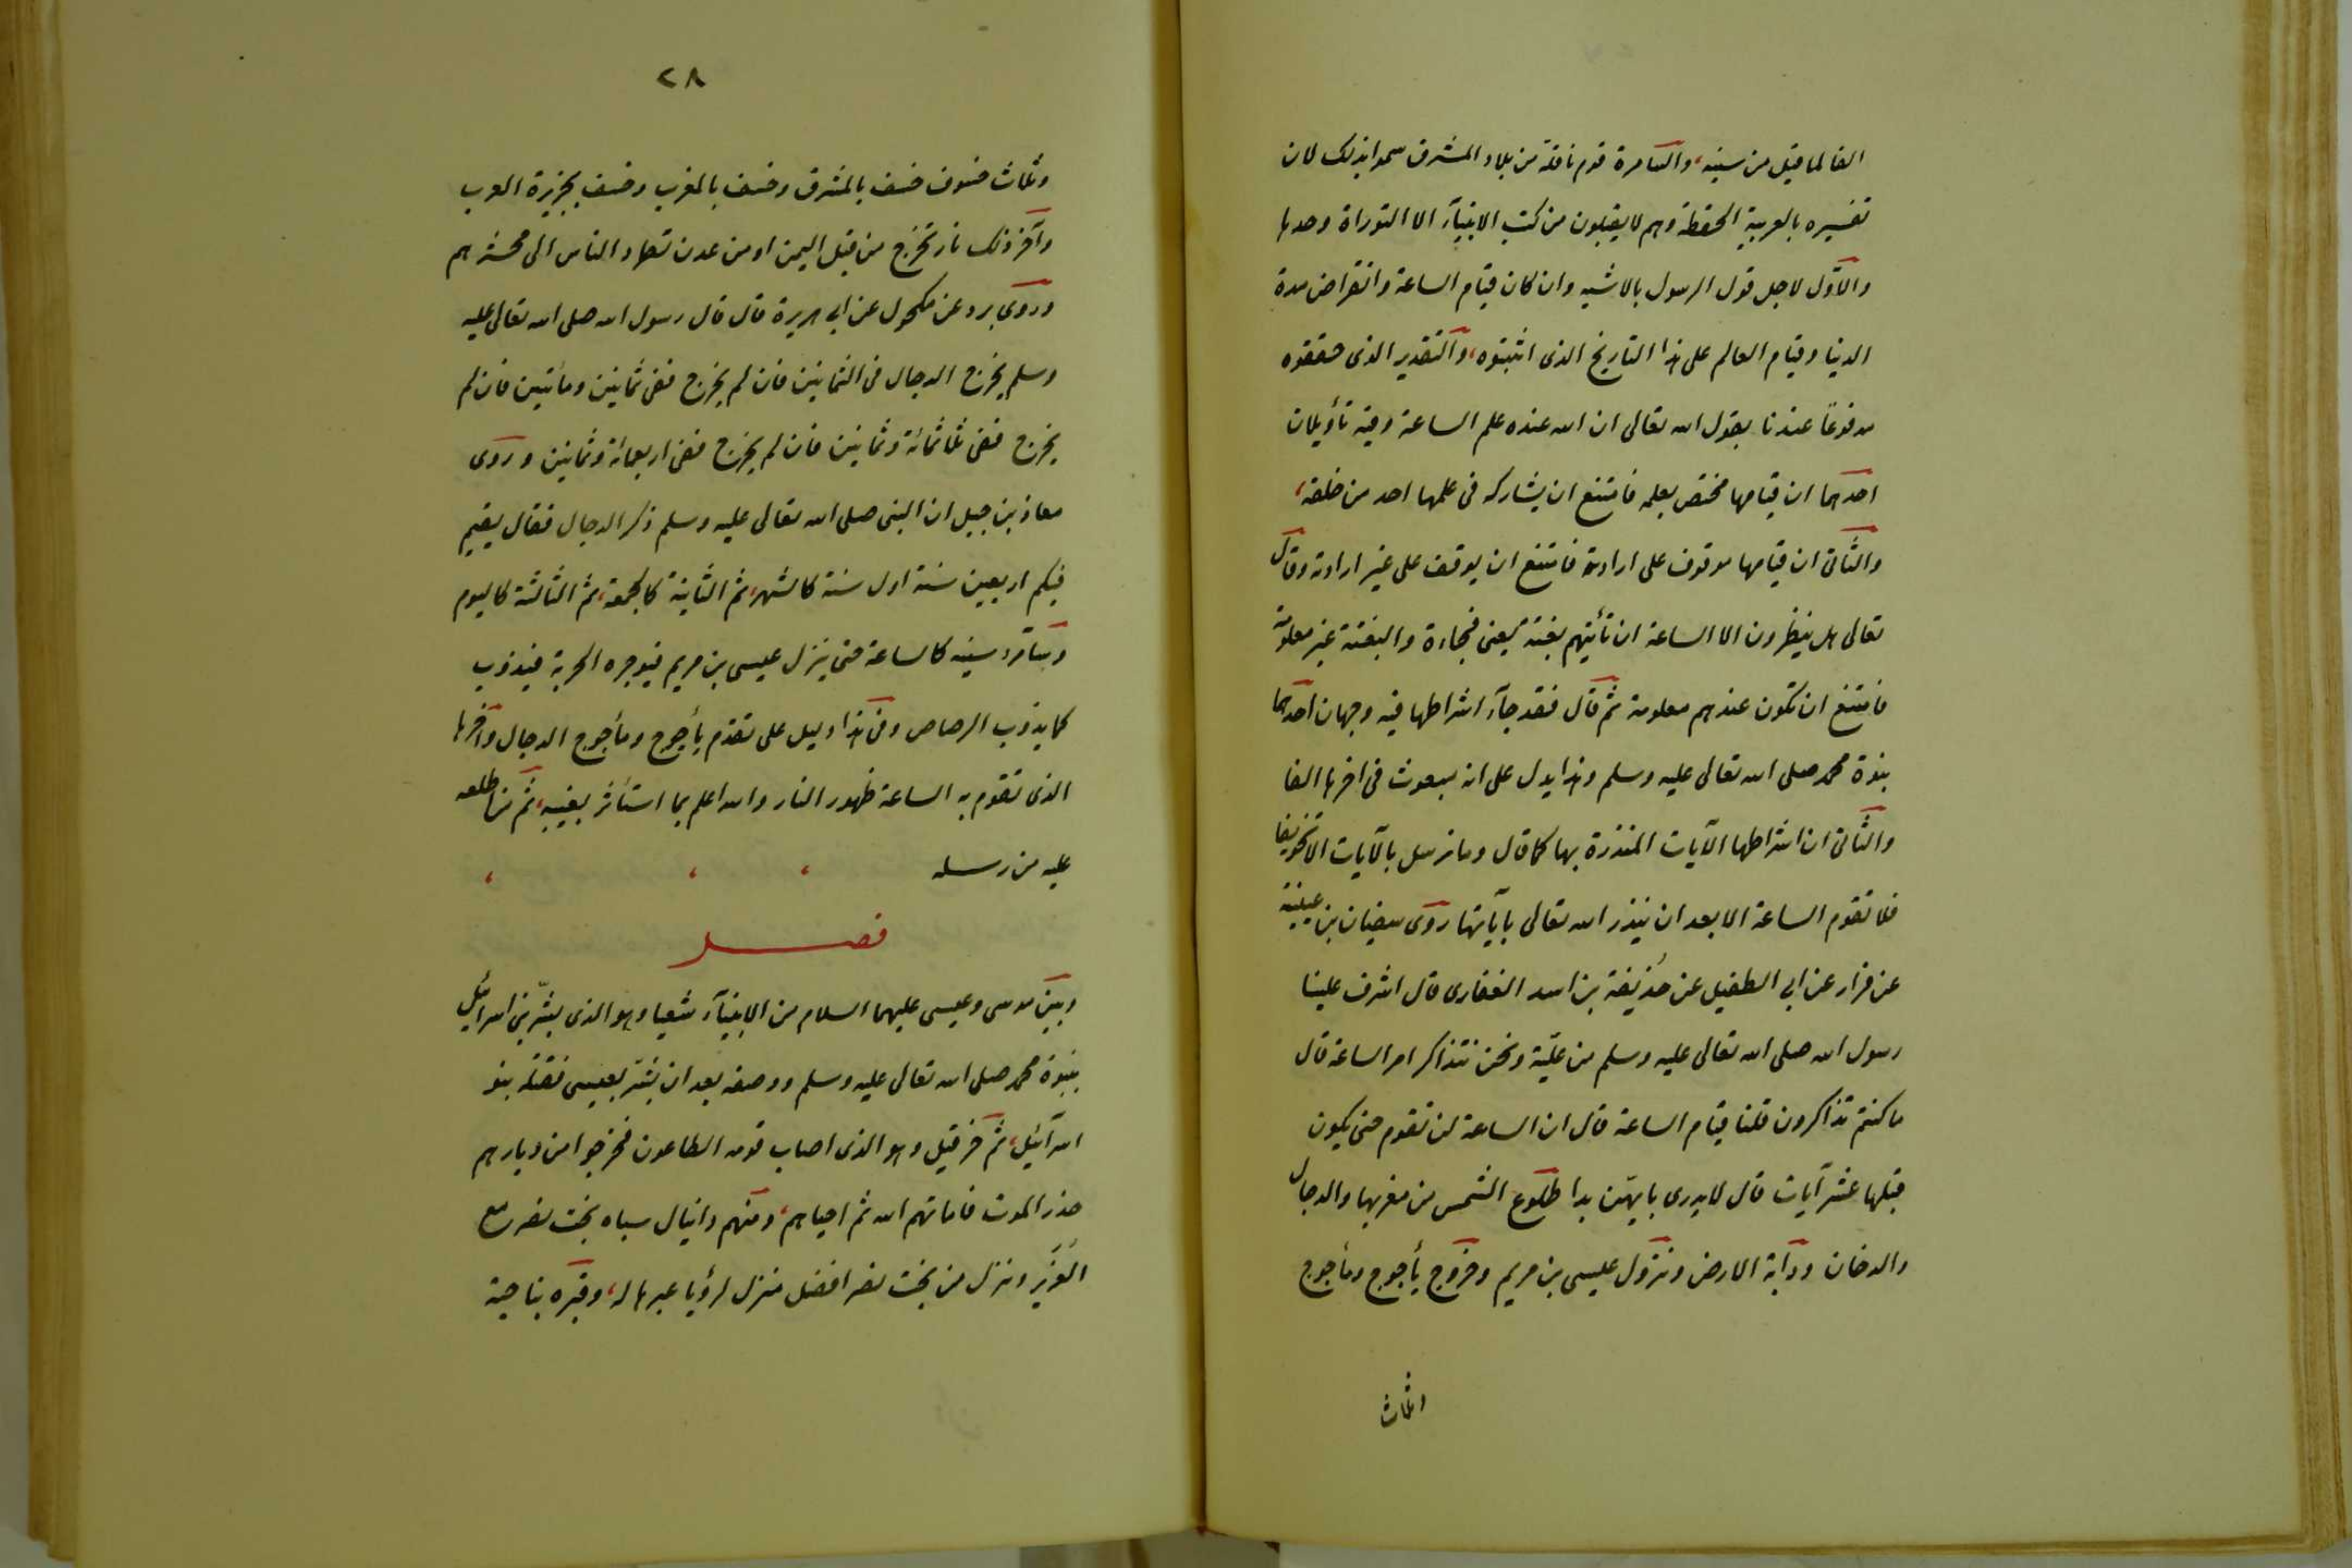 الفا لما قيل من سنيه، والسامرة قوم ناقلة من بلاد المشرق سموا بذلك لان
تفسيره بالعربية الحفظة وهم لا يقبلون من كتب الانبيآء الا التوراة وحدها
والاول لاجل قول الرسول بالاشبه وان كان قيام الساعة وانقراض مدة
الدنيا وقيام العالم على هذا التاريخ الذى اثبتوه، والتقدير الذى حققوه
مدفوعًا عندنا بقول الله تعالى ان الله عنده علم الساعة وفيه تأويلان
احدهما ان قيامها مختص بعلمه فامتنع ان يشاركه فى علمها احد من خلقه،
والثانى ان قيامها موقوف على ارادته فامتنع ان يوقف على غير ارادته وقال
تعالى هل ينظرون الا الساعة ان تأتيهم بغتة يعنى فجاءة والبغتة غير معلومة
فامتنع ان تكون عندهم معلومة ثم قال فقد جآء اشراطها فيه وجهان احدهما
نبوة محمد صلى الله تعالى عليه وسلم وهذا يدل على انه مبعوث فى اخرها الفا
والثانى ان اشراطها الآيات المنذرة بها كما قال وما نرسل بالآيات الا تخويفا
فلا تقوم الساعة الا بعد ان ينذر الله تعالى بآياتها روى سفيان بن عيينة
عن فرار عن ابى الطفيل عن حذيفة بن اسد الغفارى قال اشرف علينا
رسول الله صلى الله تعالى عليه وسلم من علّية ونحن نتذاكر امر الساعة قال
ما كنتم تذاكرون قلنا قيام الساعة قال ان الساعة لن تقوم حتى يكون
قبلها عشر آيات قال لا يدرى بايهّن بدا طلوع الشمس من مغربها والدجال
والدخان ودآبة الارض ونزول عيسى بن مريم وخروج يأجوج ومأجوج
وثلاث
٢٨
وثلاث خسوف خسف بالمشرق وخسف بالمغرب وخسف بجزيرة العرب
وآخر ذلك نار تخرج من قبل اليمن او من عدن تطرد الناس الى محشرهم
وروى برد عن مكحول عن ابى هريرة قال قال رسول الله صلى الله تعالى عليه
وسلم يخرج الدجال فى الثمانين فان لم يخرج ففى ثمانين ومأتين فان لم
يخرج ففى ثلاثمائة وثمانين فان لم يخرج ففى اربعمائة وثمانين وروى
معاذ بن جبل ان النبى صلى الله تعالى عليه وسلم ذكر الدجال فقال يقيم
فيكم اربعين سنة اول سنة كالشهر، ثم الثانية كالجمعة، ثم الثالثة كاليوم
وسآئر سنيه كالساعة حتى ينزل عيسى بن مريم فيوجره الحربة فيذوب
كما يذوب الرصاص وفى هذا دليل على تقدم يأجوج ومأجوج الدجال وآخرها
الذى تقوم به الساعة ظهور النار والله اعلم بما استأثر بغيبه، ثم من اطلعه
عليه من رسله
فصـــل
وبين موسى وعيسى عليهما السلام من الانبيآء شعيا وهو الذى بشّر بنى اسرائيل
بنبوة محمد صلى الله تعالى عليه وسلم ووصفه بعد ان بشّر بعيسى فقتله بنو
اسرآئيل، ثم حزقيل وهو الذى اصاب قومه الطاعون فخرجوا من ديارهم
حذر الموت فاماتهم الله ثم احياهم، ومنهم دانيال سباه بخت نصر مع
العزير ونزل من بخت نصر افضل منزل لرؤيا عبرها له، وقبره بناحية